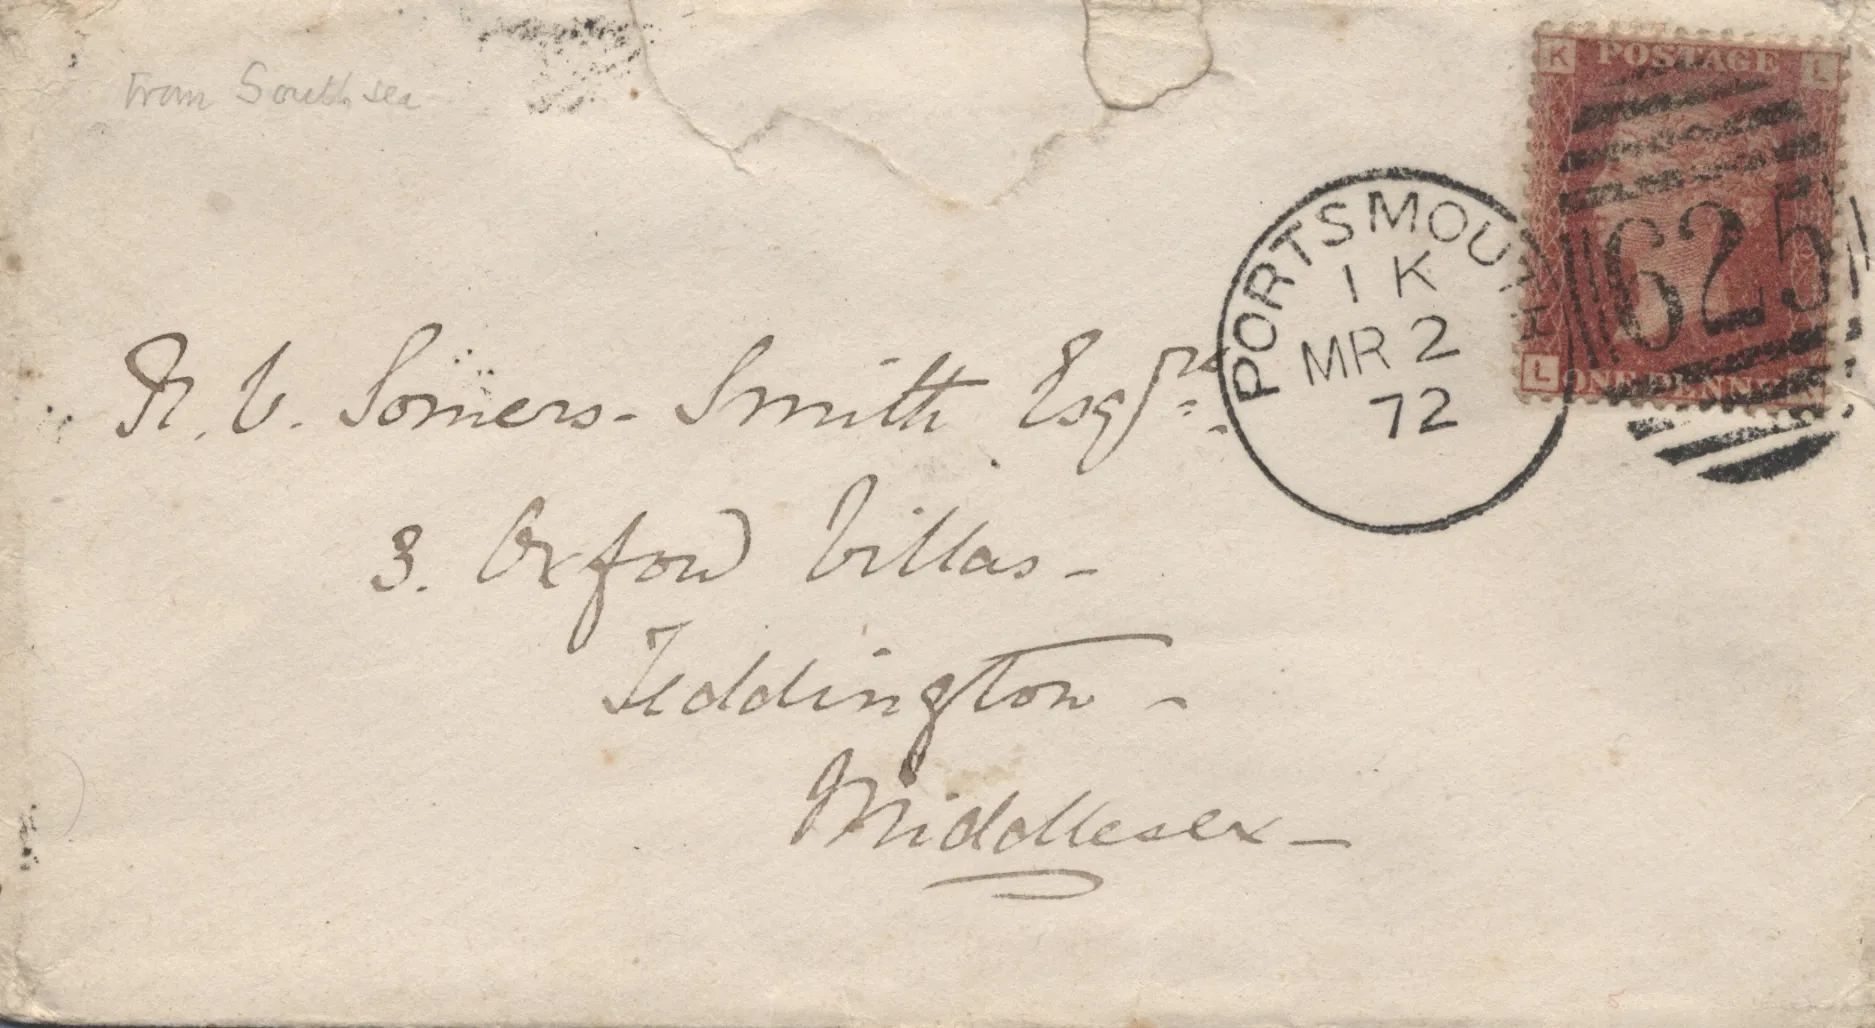 From Southsea
K POSTAGE L
PORTSMOUTH
1 K
MR 2
72
625
L ONE PENNY
R. V. Somers-Smith Esqre.
3. Oxford Villas-
Teddington-
Middlesex-